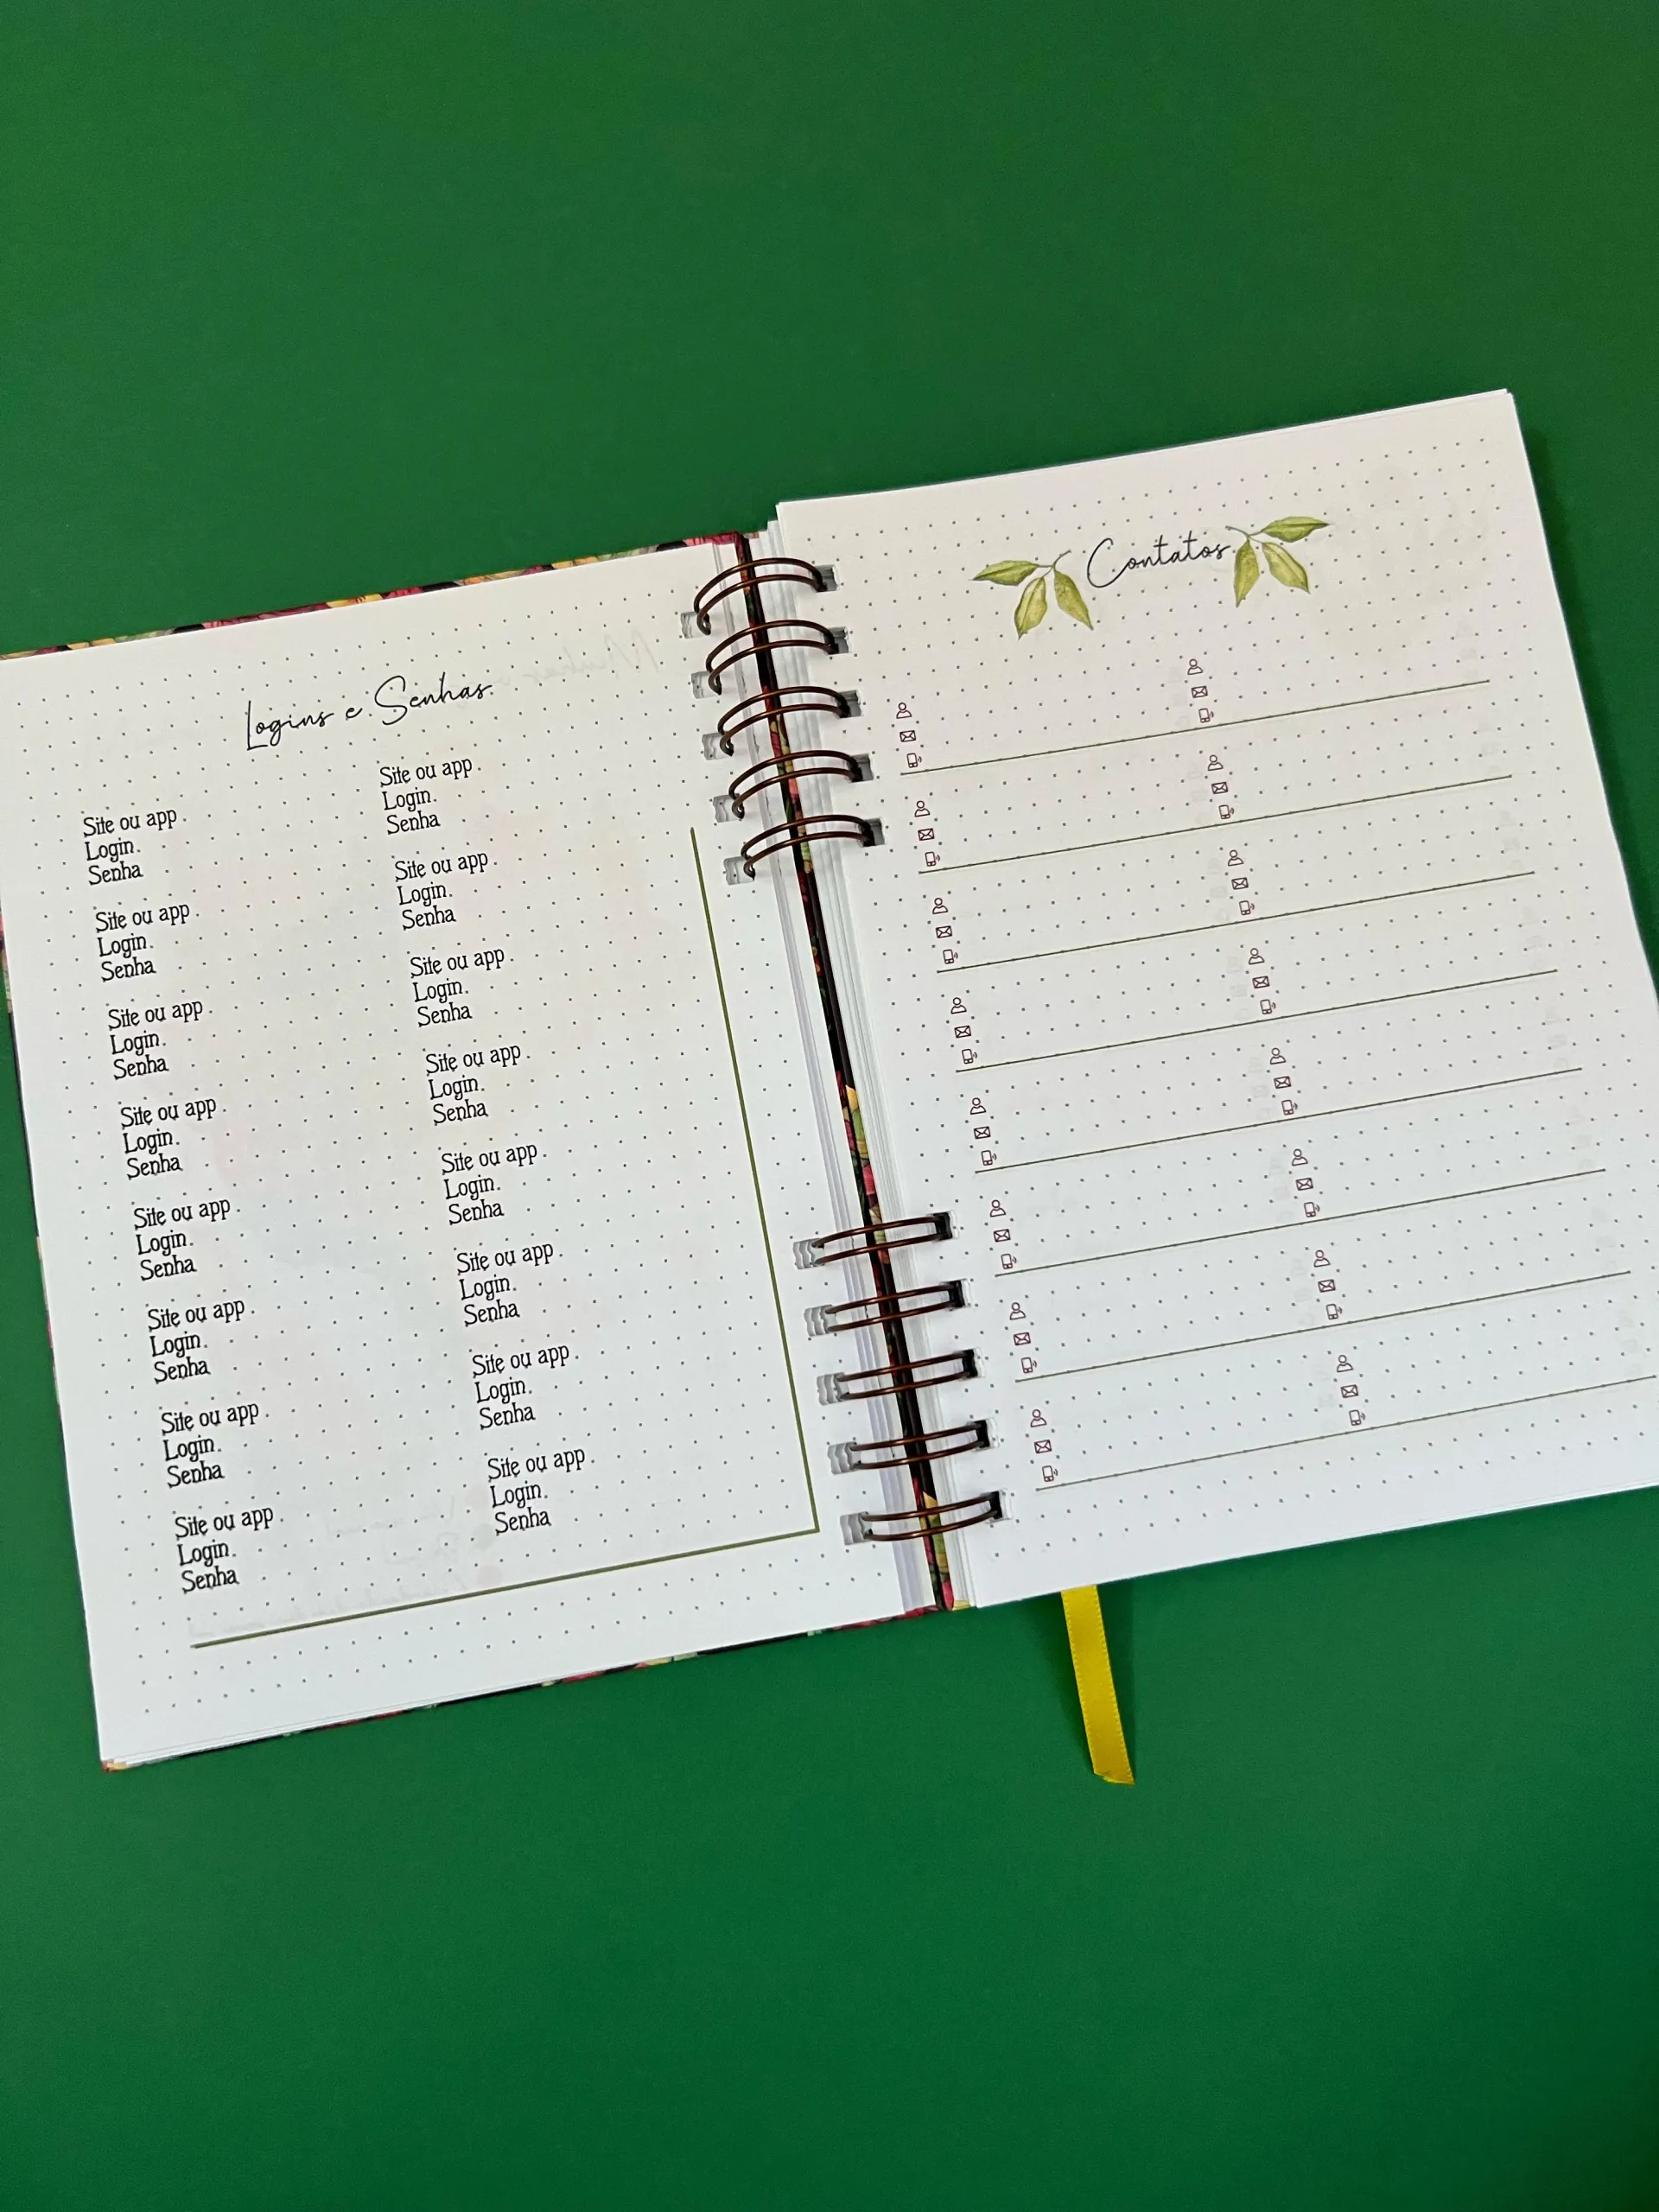 Logins e Senhas
Site ou app
Login
Senha
Site ou app
Login
Senha
Site ou app
Login
Senha
Site ou app
Login
Senha
Site ou app
Login
Senha
Site ou app
Login
Senha
Site ou app
Login
Senha
Site ou app
Login
Senha
Site ou app
Login
Senha
Site ou app
Login
Senha
Site ou app
Login
Senha
Site ou app
Login
Senha
Site ou app
Login
Senha
Site ou app
Login
Senha
Site ou app
Login
Senha
Site ou app
Login
Senha
Contatos